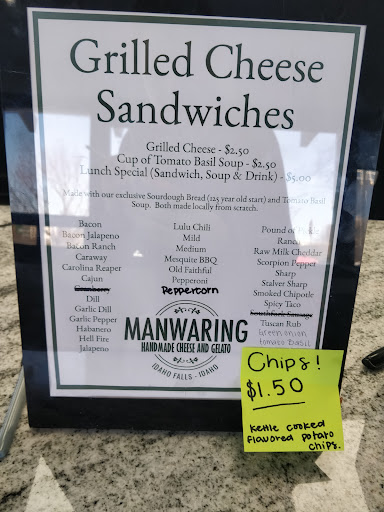 Grilled Cheese
Sandwiches
Grilled Cheese - $2.50
Cup of Tomato Basil Soup - $2.50
Lunch Special (Sandwich, Soup & Drink) - $5.00
Made with our exclusive Sourdough Bread (125 year old start) and Tomato Basil
Soup. Both made locally from scratch.
Bacon
Bacon Jalapeno
Bacon Ranch
Caraway
Carolina Reaper
Cajun
Cranberry
Dill
Garlic Dill
Garlic Pepper
Habanero
Hell Fire
Jalapeno
Lulu Chili
Mild
Medium
Mesquite BBQ
Old Faithful
Pepperoni
Peppercorn
Pound of Pickle
Ranch
Raw Milk Cheddar
Scorpion Pepper
Sharp
Stalver Sharp
Smoked Chipotle
Spicy Taco
Southfork Sausage
Tuscan Rub
Green onion
tomato basil
MANWARING
HANDMADE CHEESE AND GELATO
IDAHO FALLS - IDAHO
Chips!
$1.50
kettle cooked
flavored potato
chips.